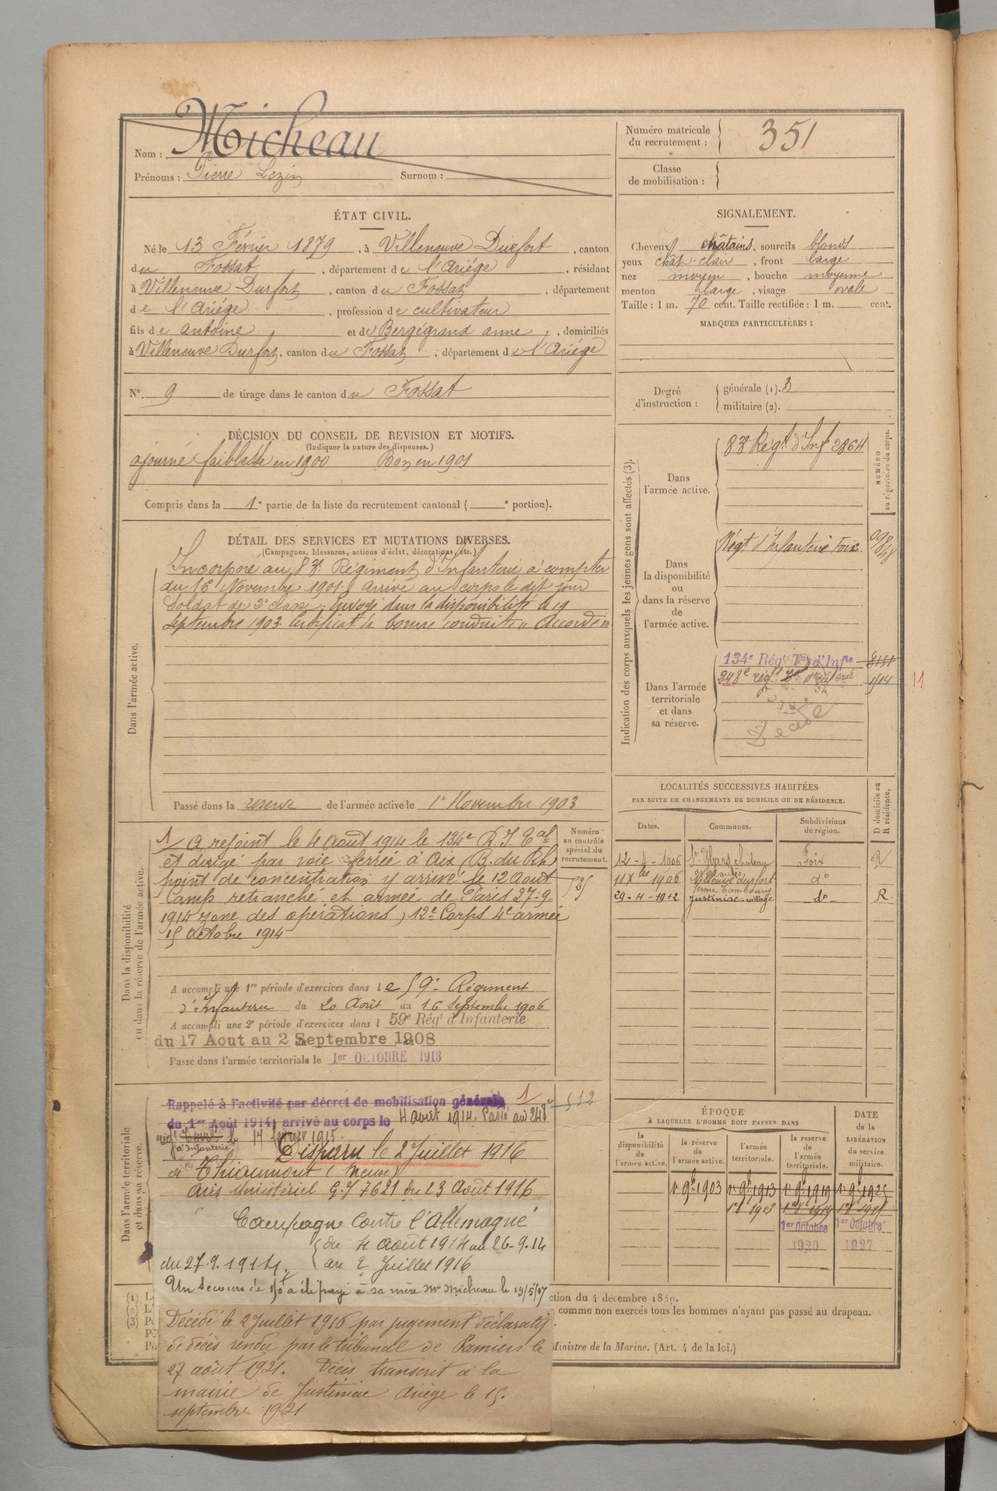 Nom : Micheau
Prénoms : Pierre Lezin Surnom :
Numéro matricule du recrutement : 351
Classe de mobilisation :
ÉTAT CIVIL.
Né le 13 Février 1879, à Villeneuve Durfort, canton
du Fossat, département de l'Ariège, résidant
à Villeneuve Durfort, canton du Fossat, département
de l'Ariège, profession de cultivateur
fils de Antoine et de Bergégrand anne, domiciliés
à Villeneuve Durfort, canton du Fossat, département de l'Ariège
N° 9 de tirage dans le canton du Fossat
SIGNALEMENT.
Cheveux châtains, sourcils blonds
yeux chât-clair, front large
nez moyen, bouche moyenne
menton large, visage ovale
Taille : 1 m. 70 cent. Taille rectifiée : 1 m. cent.
MARQUES PARTICULIÈRES :
Degré d'instruction : générale (1). 3
militaire (2).
DÉCISION DU CONSEIL DE REVISION ET MOTIFS.
(Indiquer la nature des dispenses.)
ajourné faiblesse en 1900 Bon en 1901
Compris dans la 1e partie de la liste du recrutement cantonal ( e portion).
DÉTAIL DES SERVICES ET MUTATIONS DIVERSES.
(Campagnes, blessures, actions d'éclat, décorations, etc.)
Dans l'armée active.
Incorporé au 83e Régiment d'Infanterie à compter
du 16 Novembre 1901, arrivé au corps le dit jour
Soldat de 2e classe, envoyé dans la disponibilité le 19
septembre 1903. Certificat de bonne conduite "Accordé"
Passé dans la réserve de l'armée active le 1er Novembre 1903
Indication des corps auxquels les jeunes gens sont affectés (3).
NUMÉRO au répertoire du corps.
Dans l'armée active.
83e Régt d'Inf 2864
Dans la disponibilité ou dans la réserve de l'armée active.
Régt d'Infanterie Foix
Dans l'armée territoriale et dans sa réserve.
134e Régt Terr d'Infie
248e rég.
1914
11
Décédé
LOCALITÉS SUCCESSIVES HABITÉES
PAR SUITE DE CHANGEMENTS DE DOMICILE OU DE RÉSIDENCE.
Dates. Communes. Subdivisions de région. D domicile ou R résidence.
12-4-1906 Foix R
11 Xbre 1906 Villeneuve durfort do
29-4-1912 Justiniac village do R
Dans la disponibilité ou dans la réserve de l'armée active.
Numéro au contrôle spécial du recrutement.
1 A rejoint le 4 Août 1914 le 134e R I Tal
et dirigé par voie ferrée à Aix B. du Rh.
point de concentration y arrivé le 12 Août
Camp retranché et armée de Paris 27-9-
1914 zone des opérations, 12e Corps 4e armée
15 octobre 1914
A accompli une 1re période d'exercices dans le 59e Régiment
d'Infanterie du 20 Août au 16 Septembre 1906
A accompli une 2e période d'exercices dans l 59e Régt d'Infanterie
du 17 Aout au 2 Septembre 1908
Passé dans l'armée territoriale le 1er OCTOBRE 1913
Dans l'armée territoriale et dans sa réserve.
Rappelé à l'activité par décret de mobilisation générale 1
du 1er Août 1914, arrivé au corps le 4 août 1914. Passé au 248e
régt d'Infanterie le 14 février 1915.
Disparu le 2 juillet 1916
à Thiaumont (Meuse)
avis ministériel G.Y 7621 du 23 Août 1916
Campagne contre l'Allemagne
du 4 août 1914 au 26-9-14
du 27-9-1914 au 2 Juillet 1916
Un secours de 150 a été payé à sa mère Me Micheau le 19/5/17
Décédé le 2 Juillet 1916 par jugement déclaratif
de décès rendu par le tribunal de Pamiers le
27 août 1921. Décès transcrit à la
mairie de Justiniac Ariège le 15
septembre 1921
ÉPOQUE
À LAQUELLE L'HOMME DOIT PASSER DANS
DATE de la LIBÉRATION du service militaire.
la disponibilité de l'armée active.
la réserve de l'armée active.
l'armée territoriale.
la réserve de l'armée territoriale.
1er 9bre 1903 1er 9bre 1913 1er 9bre 1919 1er 9bre 1925
1er Octobre 1er Octobre
1920 1927
comme non exercés tous les hommes n'ayant pas passé au drapeau.
Ministre de la Marine. (Art. 4 de la loi.)